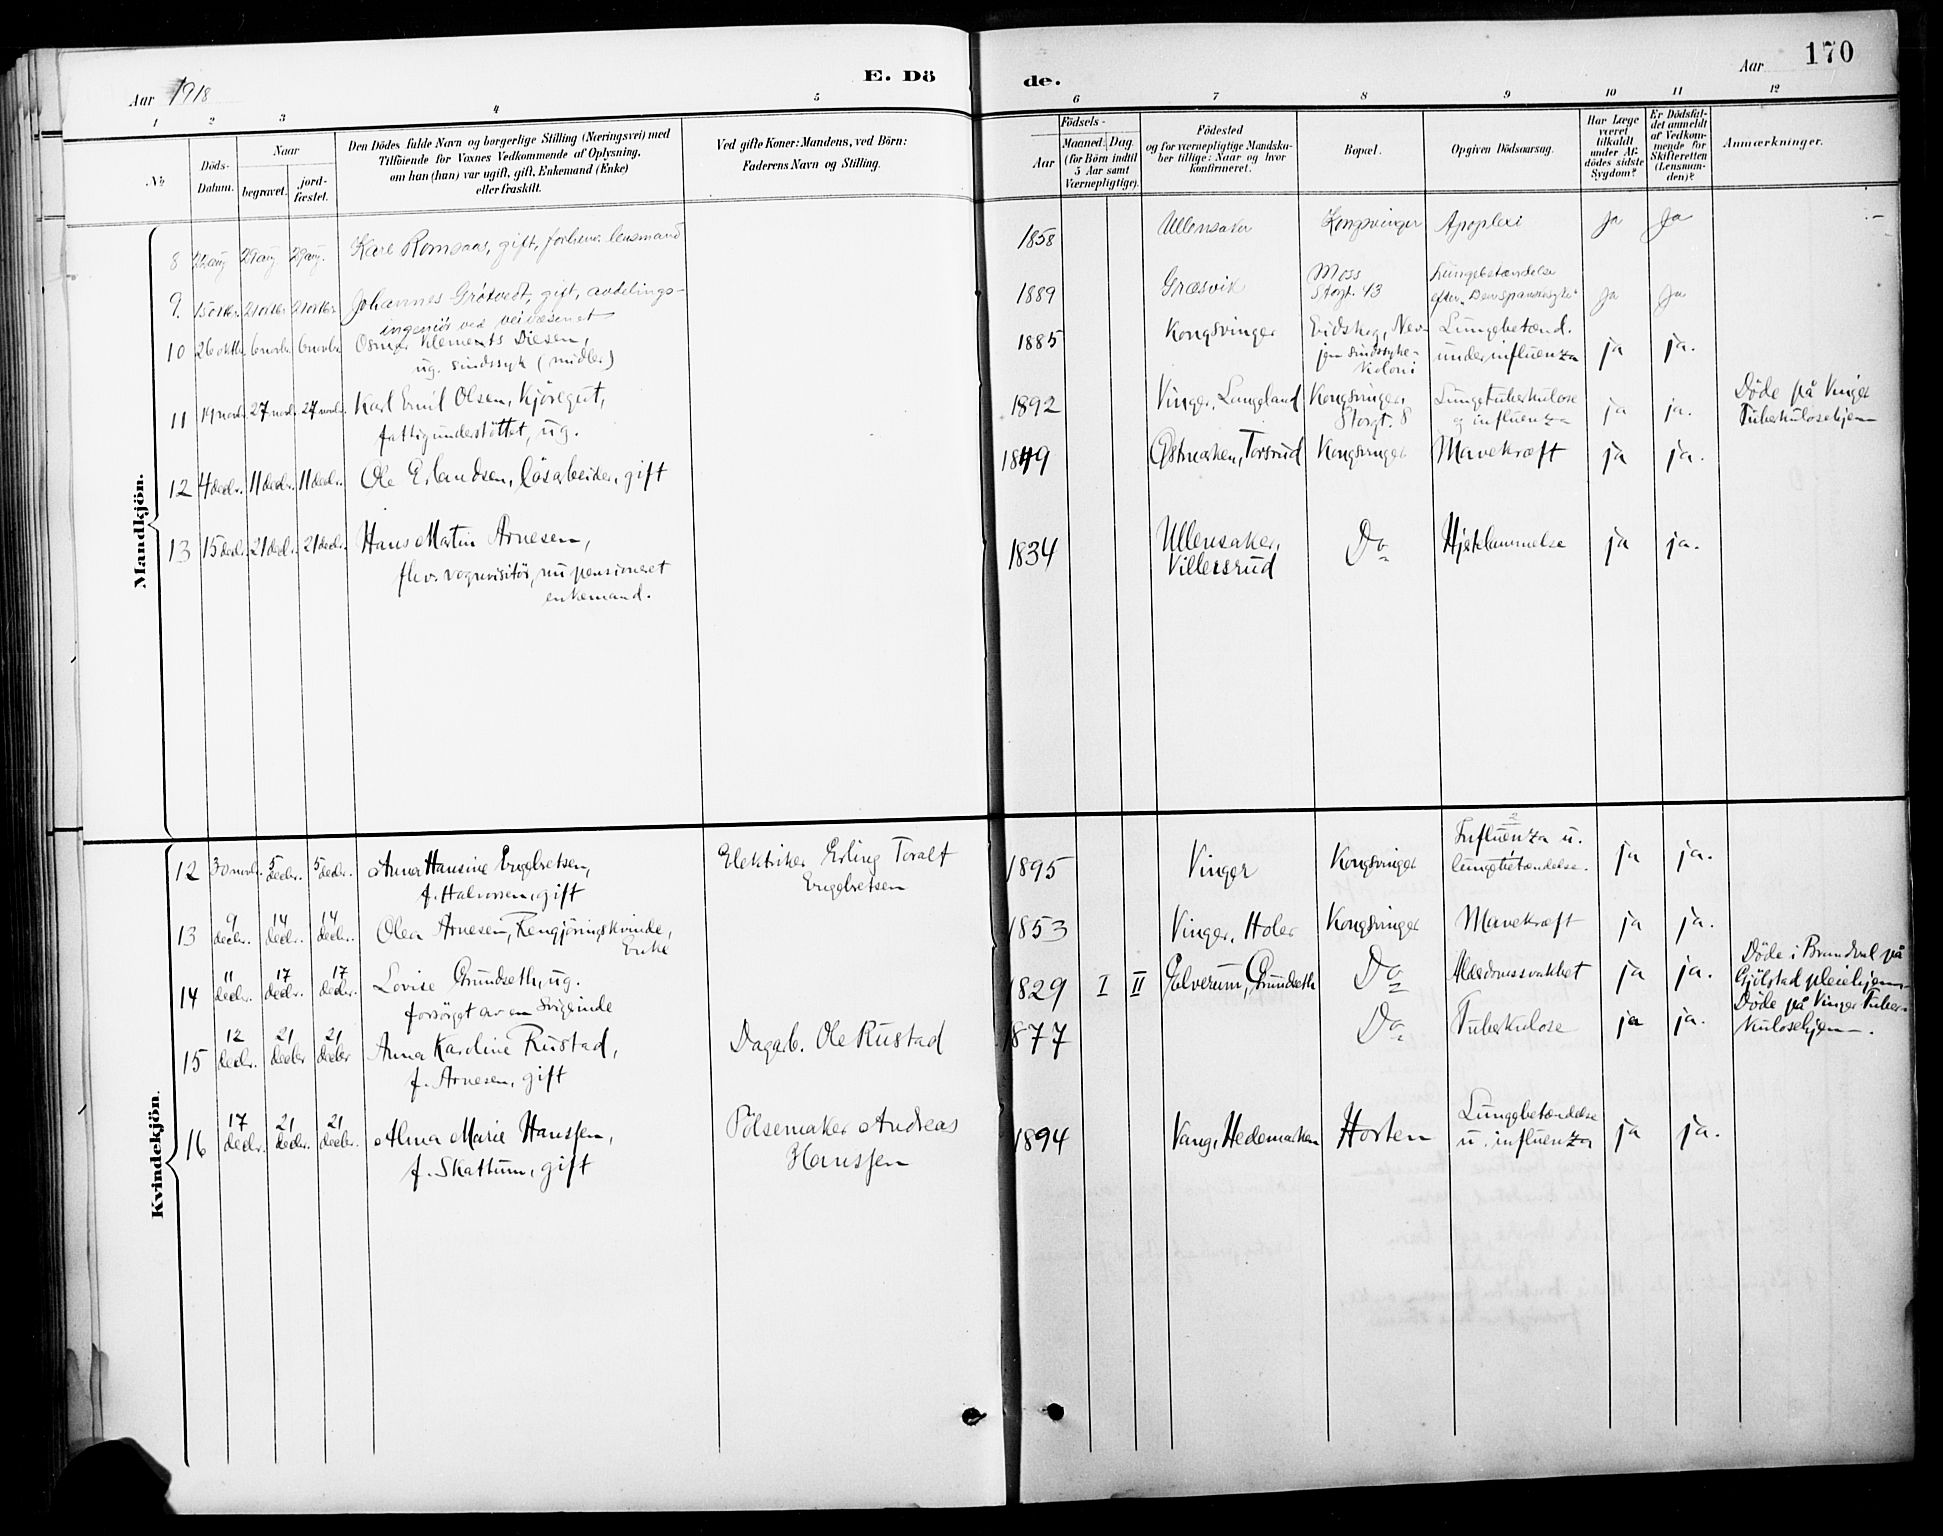 Aar 1918
E. Döde.
Aar
170
1 2 3 4 5 6 7 8 9 10 11 12
No
Döds-Datum.
Naar
begravet.
jordfæstet.
Den Dödes fulde Navn og borgerlige Stilling (Næringsvei) med
Tilföiende for Voxnes Vedkommende af Oplysning,
om han (hun) var ugift, gift, Enkemand (Enke)
eller fraskilt.
Ved gifte Koner: Mandens, ved Börn:
Faderens Navn og Stilling.
Födsels-
Aar
Maaned. Dag.
(for Börn indtil
5 Aar samt
Værnepligtige).
Födested
og for værnepligtige Mandska-
ber tillige: Naar og hvor
konfirmeret.
Bopæl.
Opgiven Dödsaarsag.
Har Læge
været
tilkaldt
under Af-
dödes sidste
Sygdom?
Er Dödsfal-
det anmeldt
af Vedkom-
mende for
Skifteretten
(Lensman-
den)?
Anmærkninger.
Mandkjön.
8 aug 29 aug 29 aug. Karl Romsaas, gift, forhenv. lensmand 1858 Ullensaker Kongsvinger Apoplexi Ja Ja
9. 15 oktbr. 21 oktbr. 21 oktbr. Johannes Grötvedt, gift, avdelings-
ingeniör ved veivæsenet 1889 Græsvik Moss
Storgt. 43 Lungebetændelse
efter "Den spanske syke" Ja Ja
10 26 oktbr. 6 novbr. 6 novbr. Osmar Klements Diesen,
ug. sindssyk (midler.) 1885 Kongsvinger Eidskog, Nev-
jen sindssyke-
koloni Lungebetænd.
under influenza ja ja.
11 19 novbr. 27 novbr. 27 novbr. Karl Emil Olsen, Kjöregut,
fattigunderstöttet, ug. 1892 Vinger, Lungeland Kongsvinger,
Storgt. 8 Lungetuberkulose
og influenza ja ja. Döde på Vinger
Tuberkulosehjem
12 4 decbr. 11 decbr. 11 decbr. Ole Erlandsen, lösarbeider, gift 1849 Östmarken, Torsrud Kongsvinger Mavekræft ja ja.
13 15 decbr. 21 decbr. 21 decbr. Hans Martin Arnesen,
fhv. vognvisitör, nu pensioneret
enkemand. 1834 Ullensaker,
Villersrud Do Hjertelammelse ja ja.
Kvindekjön.
12 30 novbr. 5 decbr. 5 decbr. Anna Hansine Engebretsen,
f. Halvorsen, gift Elektriker Erling Toralf
Engebretsen 1895 Vinger Kongsvinger Influenza u.
lungebetændelse. ja ja.
13 9 decbr. 14 decbr. 14 decbr. Olea Arnesen, Rengjöringskvinde,
Enke 1853 Vinger, Holer Kongsvinger Mavekræft ja ja.
14 11 decbr. 17 decbr. 17 decbr. Lovise Grundseth, ug.
forsörget av en svigerinde 1829 I II Elverum, Grundseth Do Alderdomssvakhet ja ja. Döde i Brandval på
Gjölstad pleiehjem
15 12 decbr. 21 decbr 21 decbr Anna Karoline Rustad,
f. Arnesen, gift Dagarb. Ole Rustad 1877 Do Tuberkulose ja ja. Döde på Vinger Tuber-
kulosehjem.
16 17 decbr. 21 decbr. 21 decbr. Alma Marie Hanssen,
f. Skattum, gift Pölsemaker Andreas
Hanssen 1894 Vang, Hedemarken Horten Lungebetændelse
u. influenza ja ja.